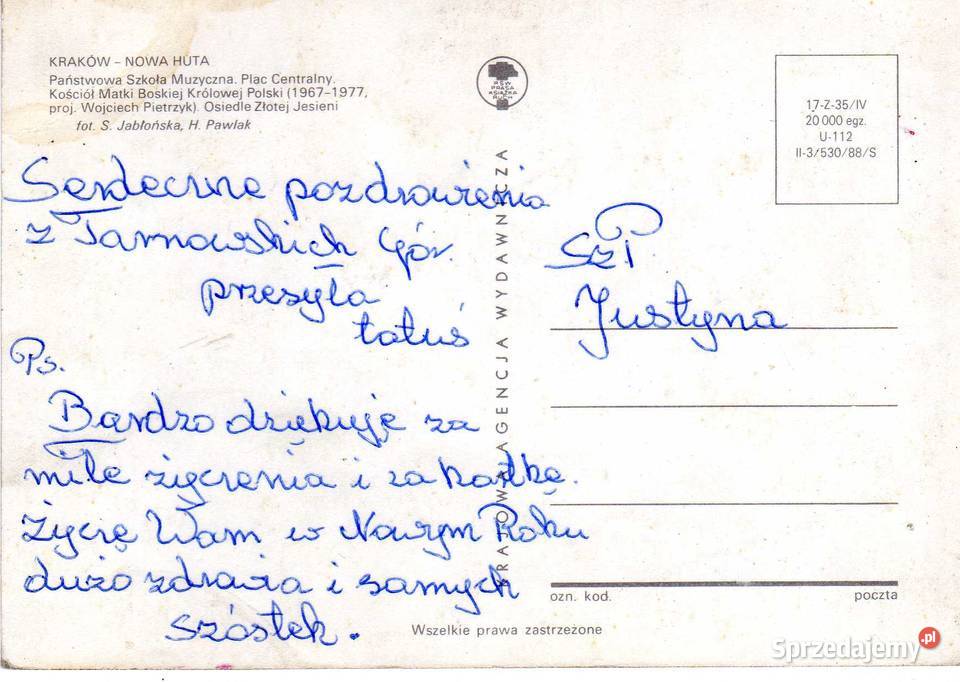 KRAKÓW – NOWA HUTA
Państwowa Szkoła Muzyczna. Plac Centralny.
Kościół Matki Boskiej Królowej Polski (1967–1977,
proj. Wojciech Pietrzyk). Osiedle Złotej Jesieni
fot. S. Jabłońska, H. Pawlak
Serdeczne pozdrowienia
z Tarnowskich Gór.
przesyła
tatuś
Ps.
Bardzo dziękuję za
miłe życzenia i za kartkę.
Życzę Wam w Nowym Roku
dużo zdrowia i samych
szóstek.
RSW
PRASA
KSIĄŻKA
RUCH
KRAJOWA AGENCJA WYDAWNICZA
17-Z-35/IV
20 000 egz.
U-112
II-3/530/88/S
SzP
Justyna
ozn. kod. poczta
Wszelkie prawa zastrzeżone
Sprzedajemy.pl